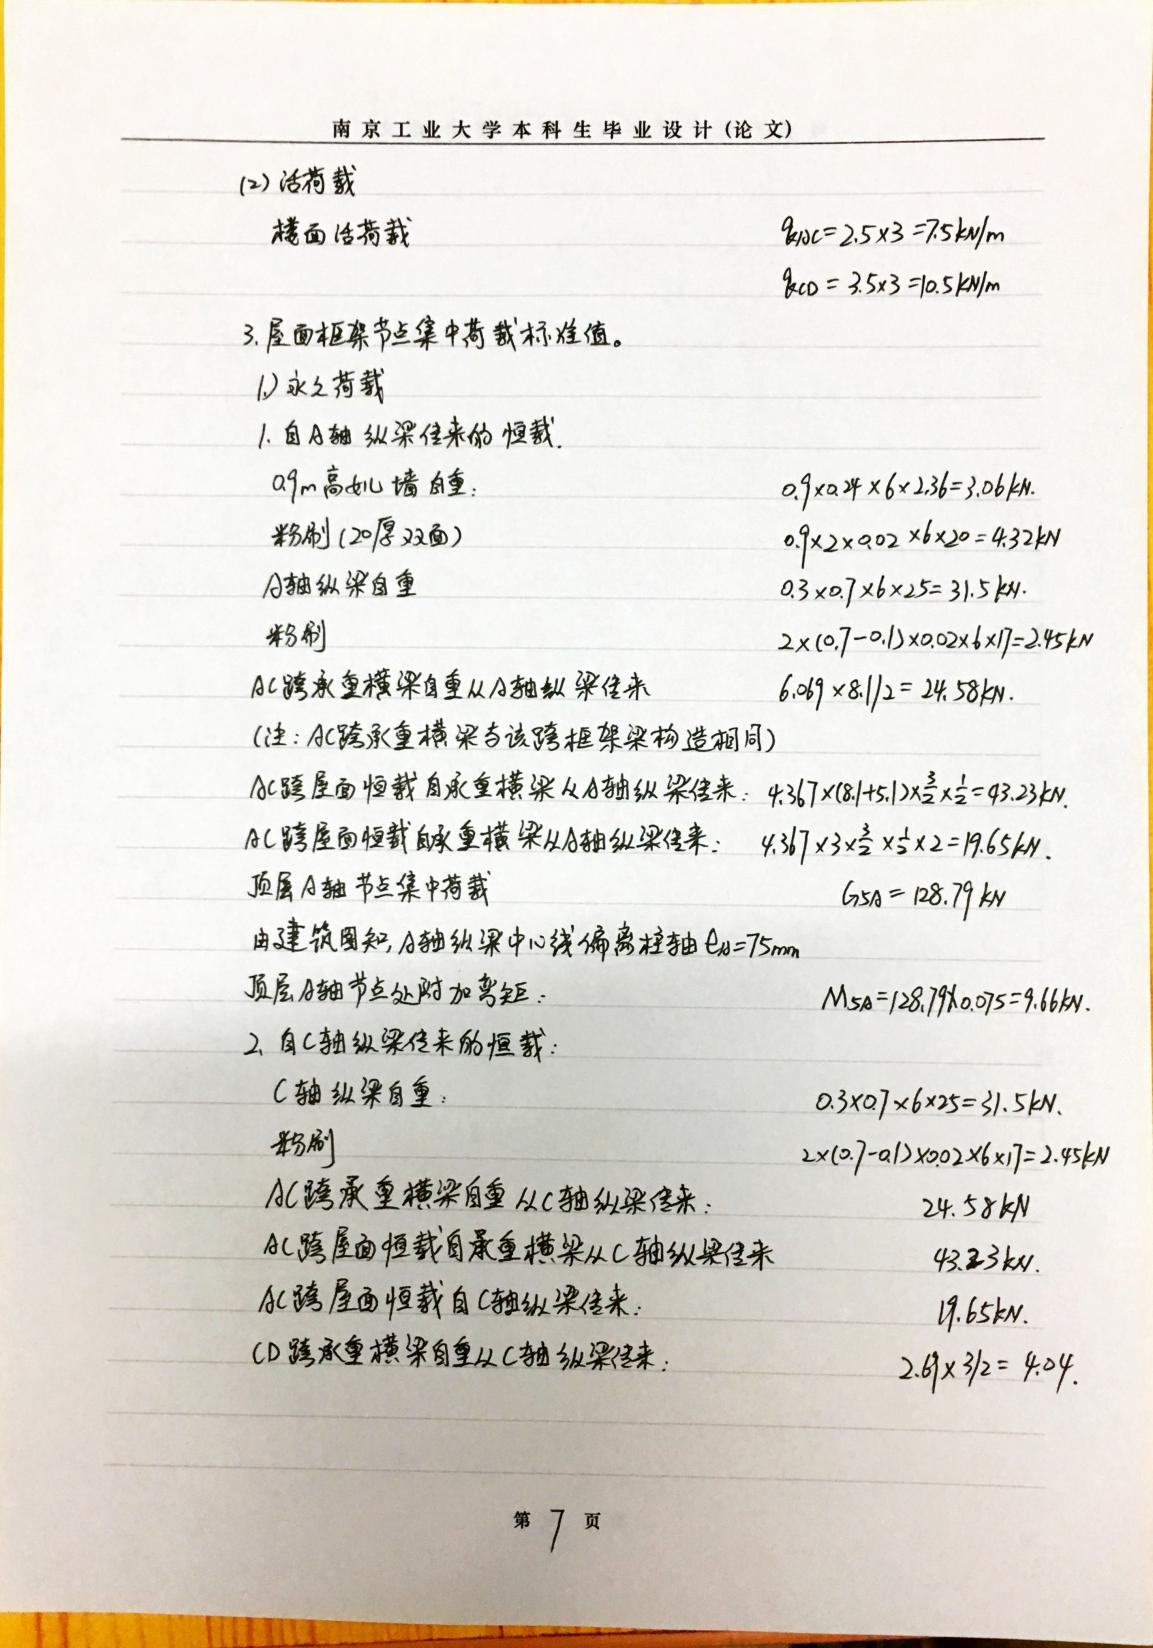 南京工业大学本科生毕业设计(论文)
(2) 活荷载
楼面活荷载 qkAC=2.5×3=7.5kN/m
qkCD=3.5×3=10.5kN/m
3.屋面框架节点集中荷载标准值。
1.) 永久荷载
1. 自A轴纵梁传来的恒载.
0.9m高女儿墙自重: 0.9×0.24×6×2.36=3.06kN.
粉刷(20厚双面) 0.9×2×0.02×6×20=4.32kN
A轴纵梁自重 0.3×0.7×6×25=31.5kN.
粉刷 2×(0.7-0.1)×0.02×6×17=2.45kN
AC跨承重横梁自重从A轴纵梁传来 6.069×8.1/2=24.58kN.
(注:AC跨承重横梁与该跨框架梁构造相同)
AC跨屋面恒载自承重横梁从A轴纵梁传来: 4.367×(8.1+5.1)×3/2×1/2=43.23kN.
AC跨屋面恒载自承重横梁从A轴纵梁传来: 4.367×3×3/2×1/2×2=19.65kN.
顶层A轴节点集中荷载 G5A=128.79kN
由建筑图知,A轴纵梁中心线偏离柱轴eA=75mm
顶层A轴节点处附加弯矩: M5A=128.79×0.075=9.66kN.
2. 自C轴纵梁传来的恒载:
C轴纵梁自重: 0.3×0.7×6×25=31.5kN.
粉刷 2×(0.7-0.1)×0.02×6×17=2.45kN
AC跨承重横梁自重从C轴纵梁传来: 24.58kN
AC跨屋面恒载自承重横梁从C轴纵梁传来 43.23kN.
AC跨屋面恒载自C轴纵梁传来: 19.65kN.
CD跨承重横梁自重从C轴纵梁传来: 2.69×3/2=4.04.
第 7 页